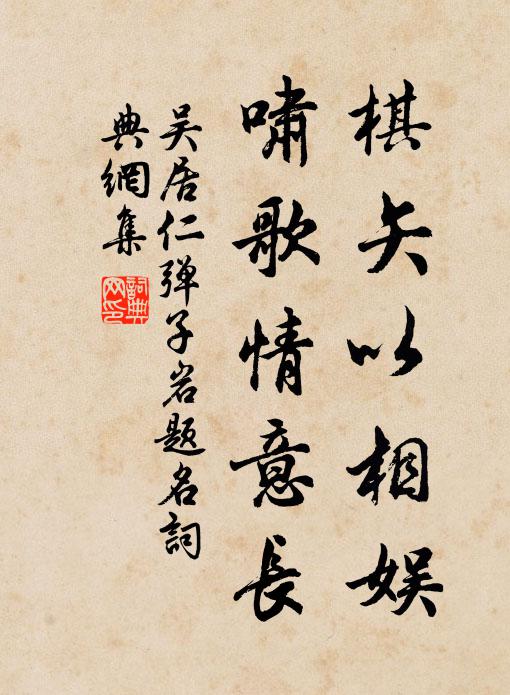 棋矢以相娱
啸歌情意長
吴居仁弹子岩题名詞
典網集
詞典
网印